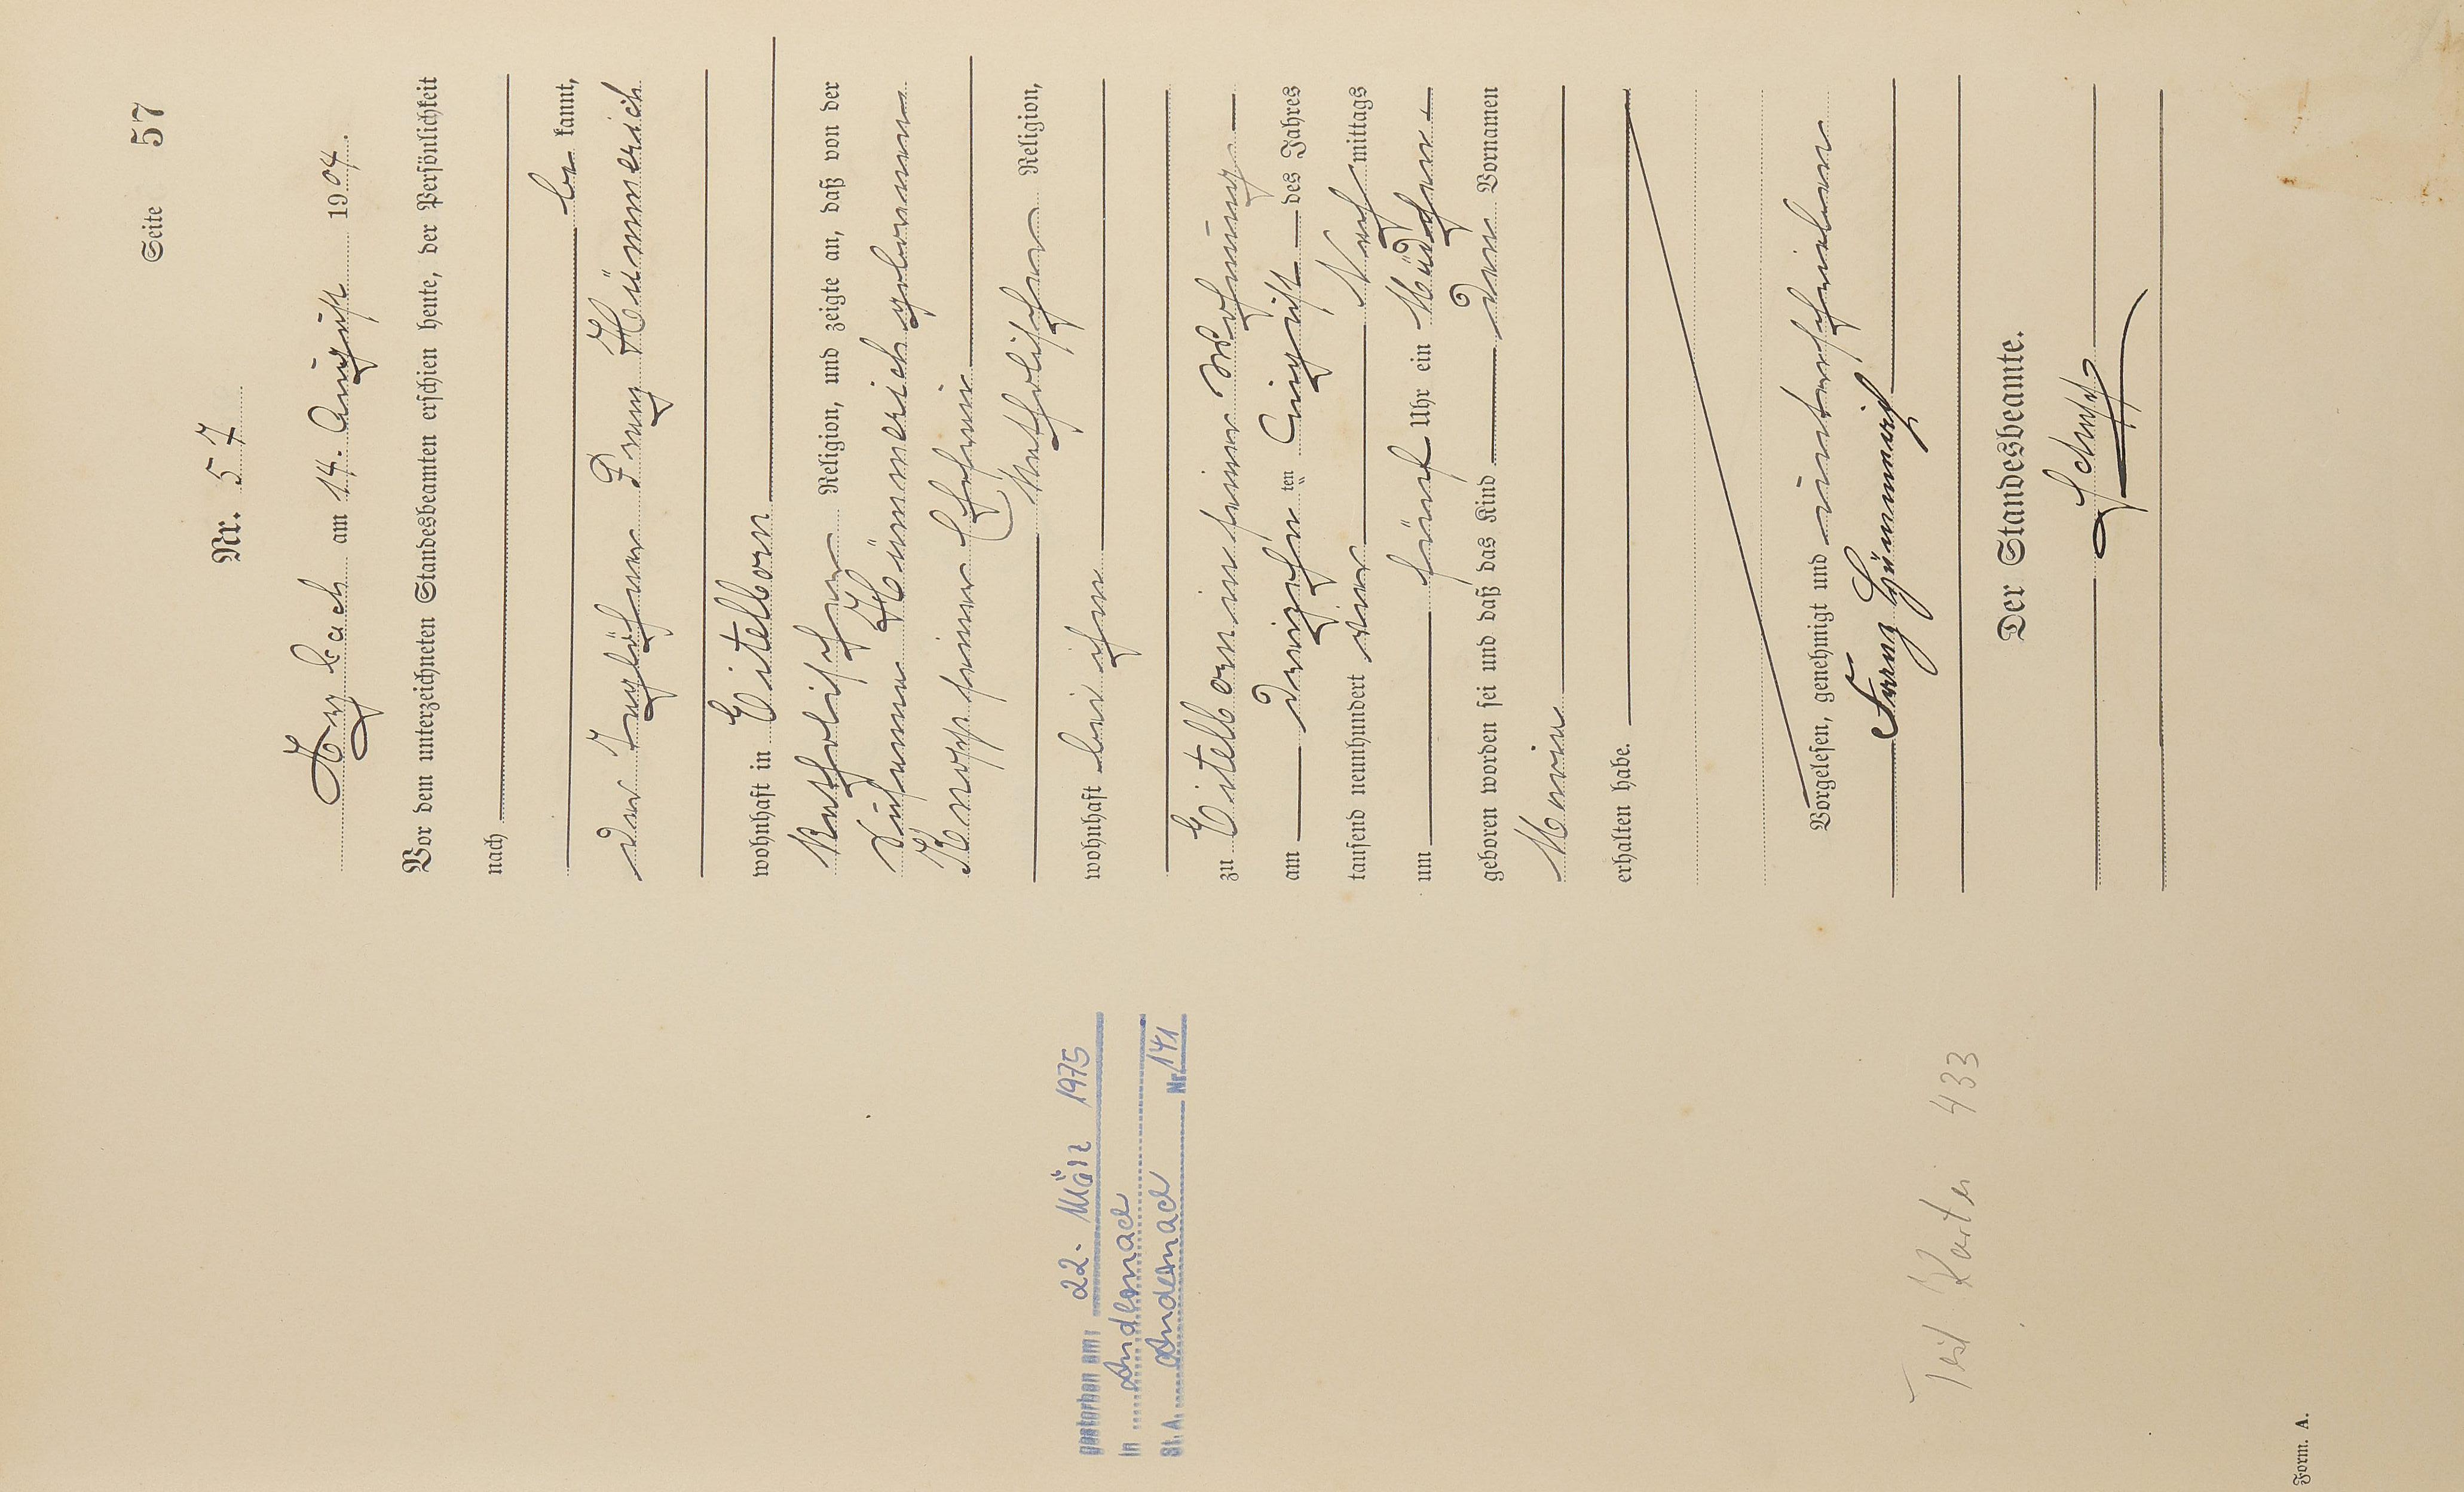 Seite 57
Nr. 57
Arzbach am 14. August 1904.
Vor dem unterzeichneten Standesbeamten erschien heute, der Persönlichkeit
nach
be kannt,
der Taglöhner Franz Hümmerich
wohnhaft in Eitelborn
katholischer Religion, und zeigte an, daß von der
Hümmerich geborenen
Knopp seiner Ehefrau
katholischer Religion,
wohnhaft bei ihm
zu Eitelborn in seiner Wohnung
am dreizehn ten August des Jahres
tausend neunhundert vier Nach mittags
um fünf Uhr ein Mädchen
geboren worden sei und daß das Kind den Vornamen
Maria
erhalten habe.
Vorgelesen, genehmigt und unterschrieben
Franz Hümmerich
Der Standesbeamte.
gestorben am: 22. März 1975
in Andernach
St. A. Andernach Nr. 141
433
Form. A.